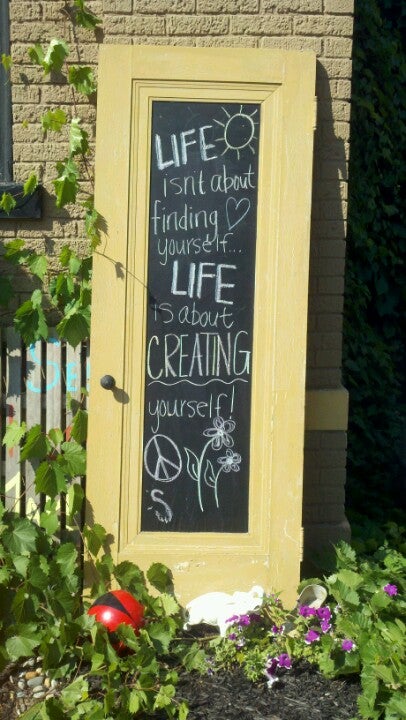 LIFE
isn't about
finding
yourself...
LIFE
is about
CREATING
yourself!
'S